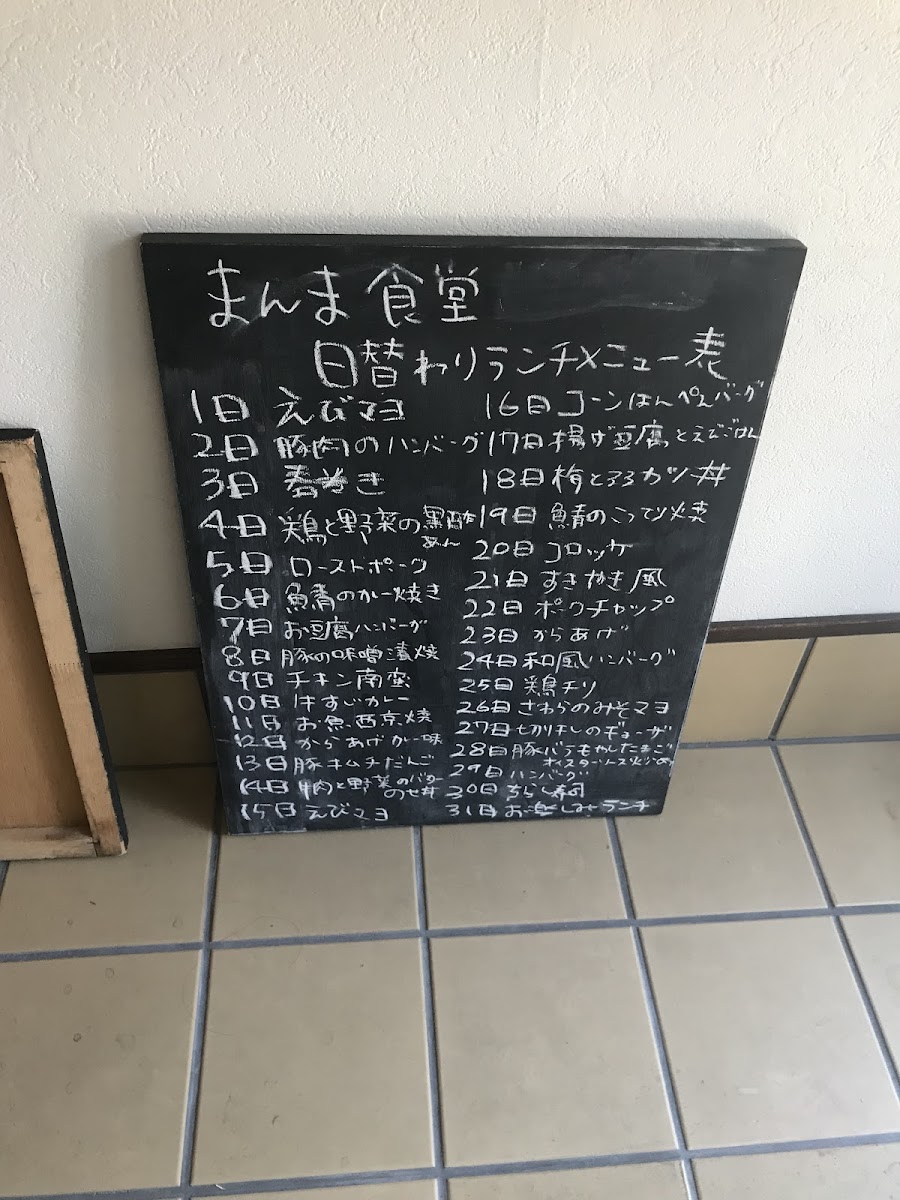 まんま食堂
日替わりランチメニュー表
1日 えびマヨ
2日 豚肉のハンバーグ
3日 春巻き
4日 鶏と野菜の黒酢
あん
5日 ローストポーク
6日 魚のカレー焼き
7日 お豆腐ハンバーグ
8日 豚の味噌漬焼
9日 チキン南蛮
10日 牛すじカレー
11日 お魚西京焼
12日 からあげカレー味
13日 豚キムチだんご
14日 肉と野菜のバター
のせ丼
15日 えびマヨ
16日 コーンはんぺんバーグ
17日 揚げ豆腐とえびごはん
18日 梅とろろカツ丼
19日 鯖のこってり焼
20日 コロッケ
21日 すきやき風
22日 ポークチャップ
23日 からあげ
24日 和風ハンバーグ
25日 鶏チリ
26日 さわらのみそマヨ
27日 切りほしのギョーザ
28日 豚バラもやしたまご
オイスターソース炒め
29日 ハンバーグ
30日 ちらし寿司
31日 お楽しみランチ